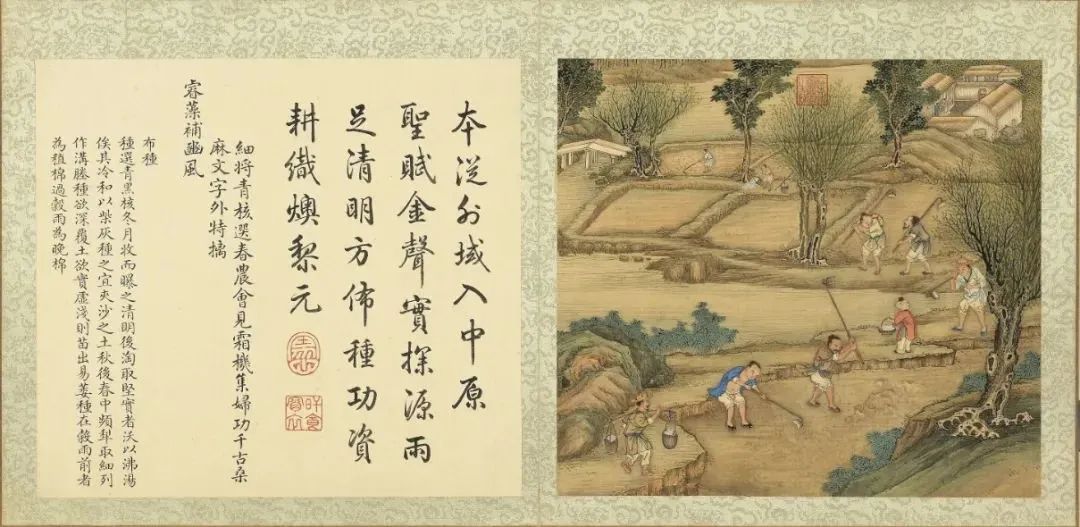 本從外域入中原
聖賦金聲實探源雨
足清明方佈種功資
耕織燠黎元
細將青核選春農會見霜機集婦功千古桑
麻文字外特摛
睿藻補豳風
布種
種選青黑核冬月收而曝之清明後淘取堅實者沃以沸湯
俟其冷和以柴灰種之宜夾沙之土秋後春中頻犁取細列
作溝塍種欲深覆土欲實虛淺則苗出易萎種在穀雨前者
為植棉過穀雨為晚棉